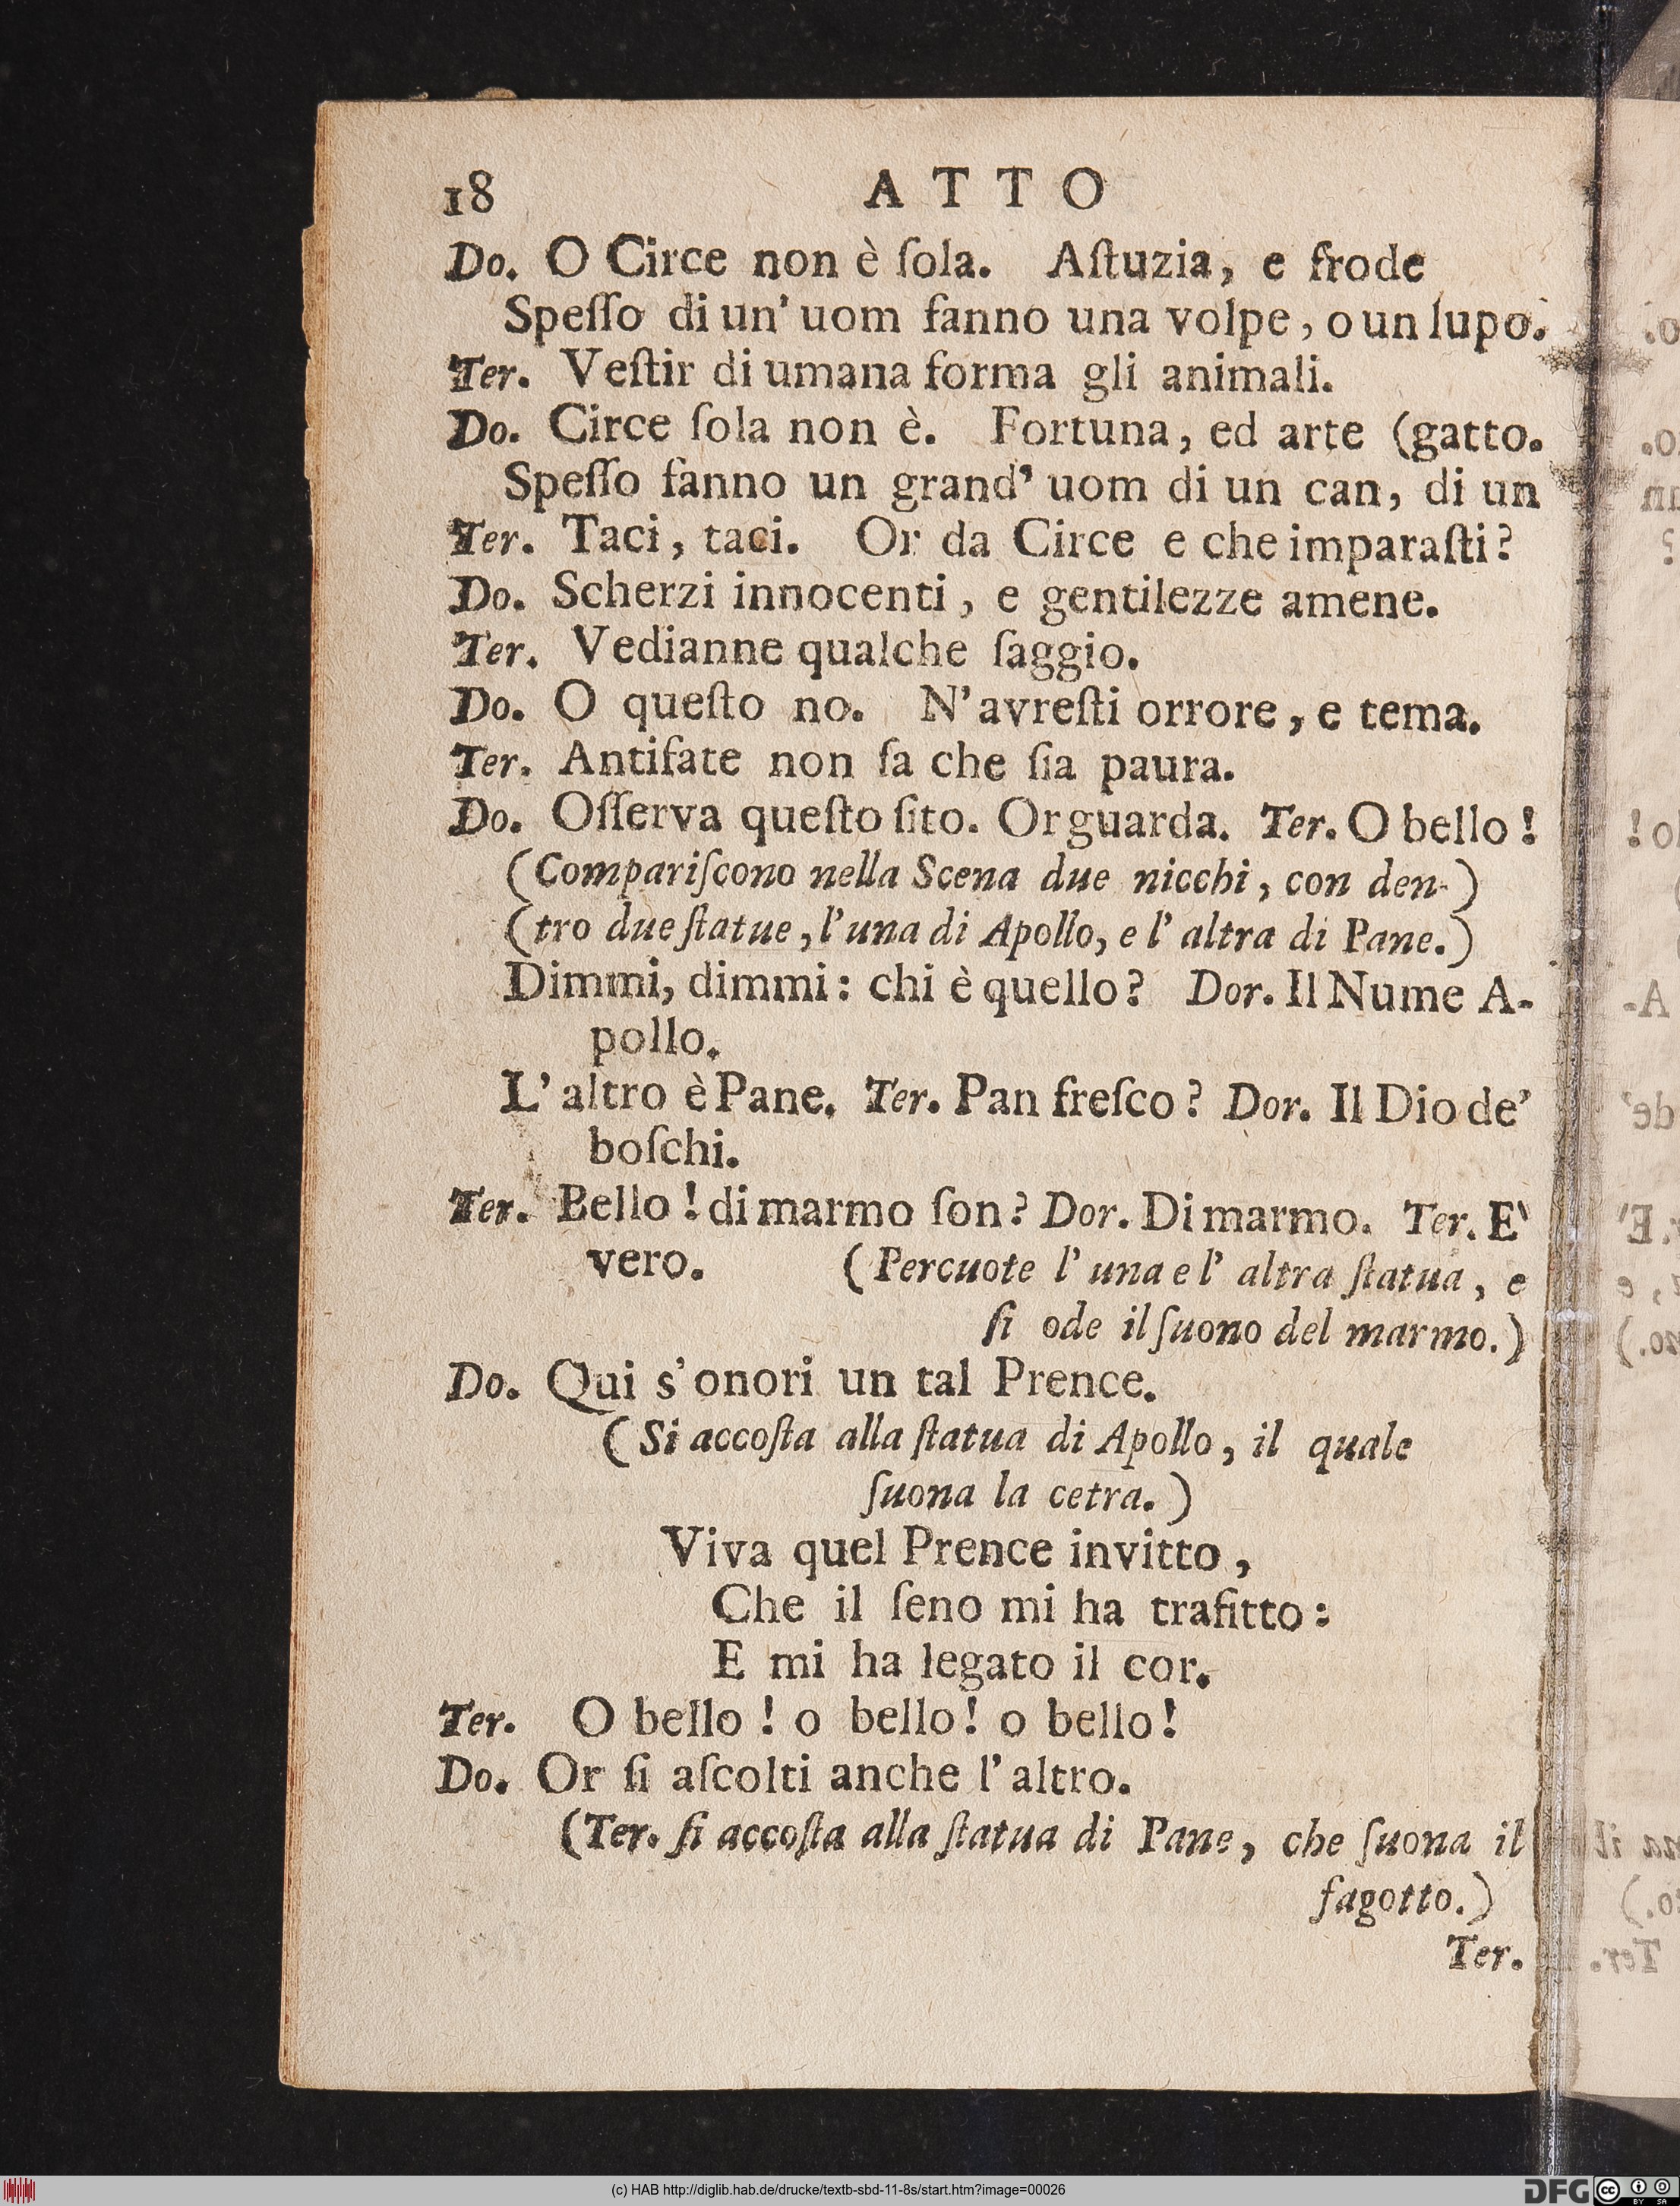 18 ATTO
Do. O Circe non è ſola. Aſtuzia, e frode
Speſſo di un' uom fanno una volpe, o un lupo.
Ter. Veſtir di umana forma gli animali.
Do. Circe ſola non è. Fortuna, ed arte (gatto.
Speſſo fanno un grand' uom di un can, di un
Ter. Taci, taci. Or da Circe e che imparaſti?
Do. Scherzi innocenti, e gentilezze amene.
Ter. Vedianne qualche ſaggio.
Do. O queſto no. N'avreſti orrore, e tema.
Ter. Antifate non ſa che ſia paura.
Do. Oſſerva queſto ſito. Or guarda. Ter. O bello!
(Compariſcono nella Scena due nicchi, con den-)
(tro due ſtatue, l'una di Apollo, e l'altra di Pane.)
Dimmi, dimmi: chi è quello? Dor. Il Nume A-
pollo.
L'altro è Pane. Ter. Pan freſco? Dor. Il Dio de'
boſchi.
Ter. Bello! di marmo ſon? Dor. Di marmo. Ter. E'
vero. (Percuote l'una e l'altra ſtatua, e
ſi ode il ſuono del marmo.)
Do. Qui s'onori un tal Prence.
(Si accoſta alla ſtatua di Apollo, il quale
ſuona la cetra.)
Viva quel Prence invitto,
Che il ſeno mi ha trafitto:
E mi ha legato il cor.
Ter. O bello! o bello! o bello!
Do. Or ſi aſcolti anche l'altro.
(Ter. ſi accoſta alla ſtatua di Pane, che ſuona il
fagotto.)
Ter.
(c) HAB http://diglib.hab.de/drucke/textb-sbd-11-8s/start.htm?image=00026
DFG cc BY SA